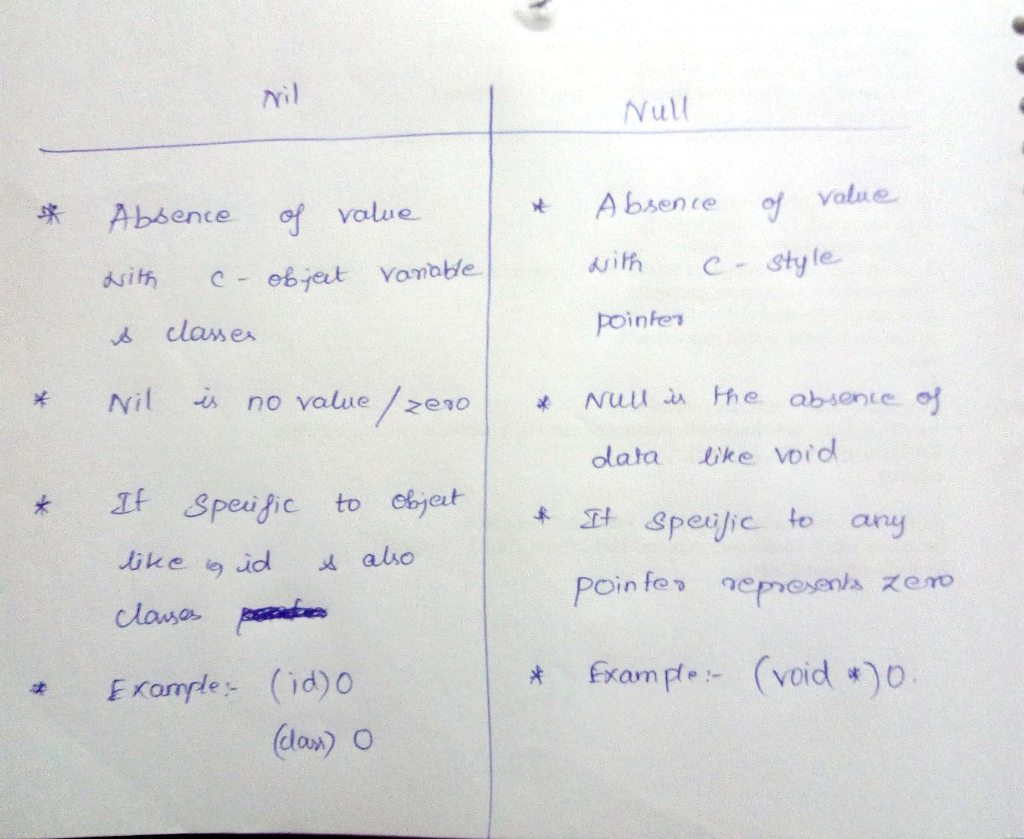 Nil
Absence of value
with c - object variable
& classes
* Nil is no value / zero
* It specific to object
like id & also
classes
* Example:- (id) 0
(class) 0
Null
* Absence of value
with c - style
pointer
* Null is the absence of
data like void
* It specific to any
pointer represents zero
* Example:- (void *) 0.